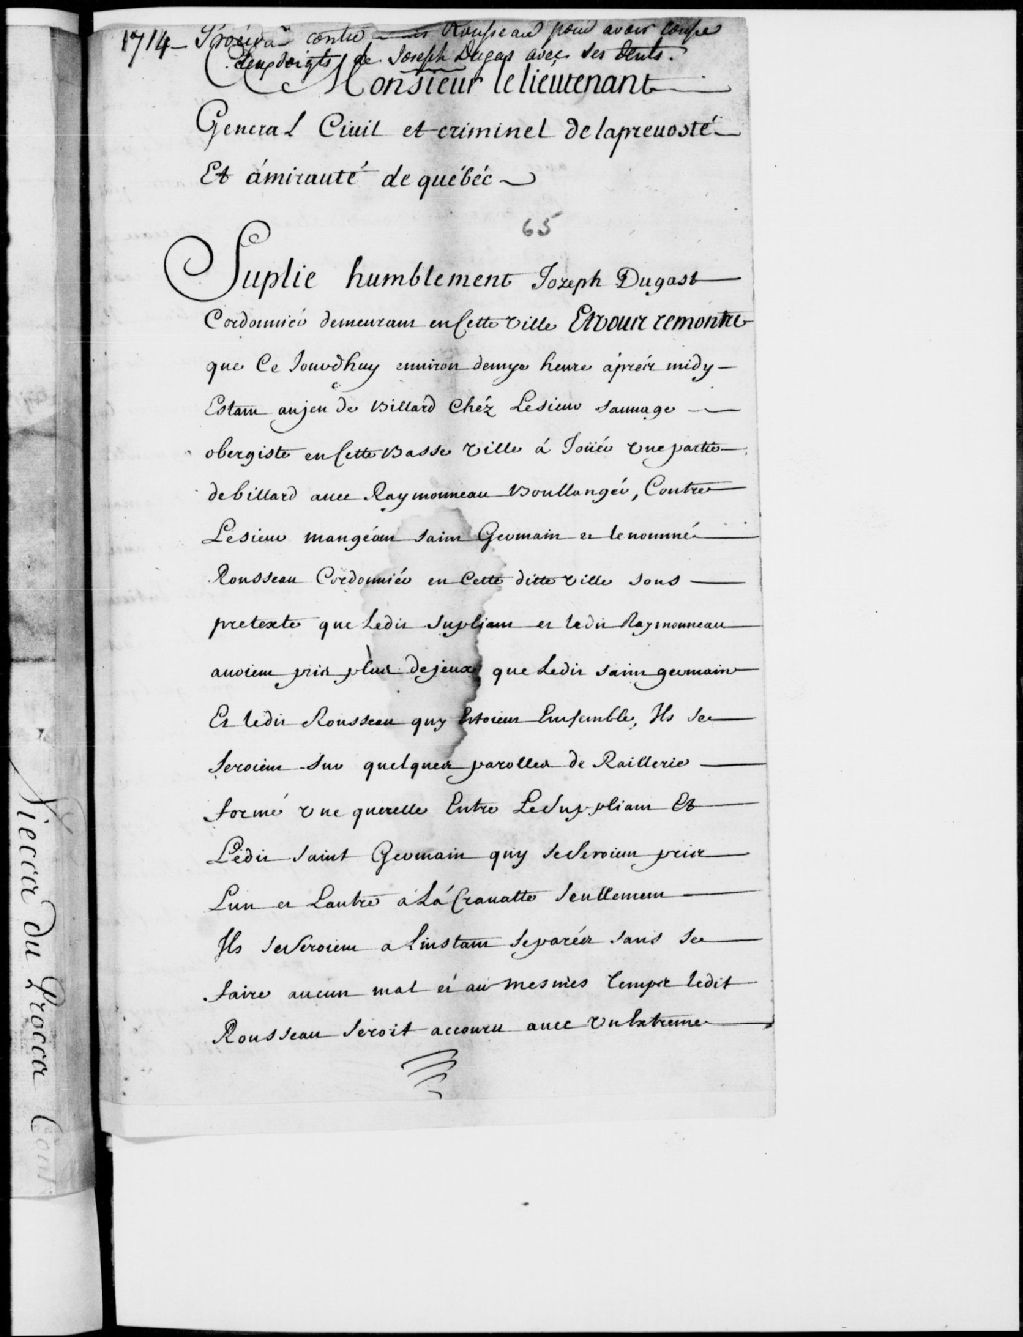 1714 - Procédure contre Rousseau pour avoir coupé
deux doigts de Joseph Dugas avec ses dents.
Monsieur le lieutenant
General Ciuil et criminel de la preuosté
Et ámirauté de québéc
65
Suplie humblement Jozeph Dugast
Cordonnié demeurant en Cette ville Et vous remontre
que Ce Jourdhuy enuiron demye heure áprés midy
Estant au jeu de Billard Chéz Le sieur sauuage
obergiste en Cette Basse ville á Joüér vne partie
de billard auec Raymonneau Boullangér, Contre
Le sieur mangéant saint Germain et le nommé
Rousseau Cordonniér en Cette ditte ville sous
pretexte que Ledit Supliant et ledit Raymonneau
auoient pris plus de jeux que Ledit saint germain
Et ledit Rousseau quy Estoient Ensemble, Ils se
seroient sur quelques parolles de Raillerie
formé vne querelle Entre Le Suppliant Et
Lédit saint Germain quy se seroient pris
Lun et Lautre á Lá Crauatte seullement
Ils se seroient a Linstant separés sans se
faire aucun mal et au mesmes temps ledit
Rousseau seroit accouru auec vn Extreme
Pieces du Proces Cont